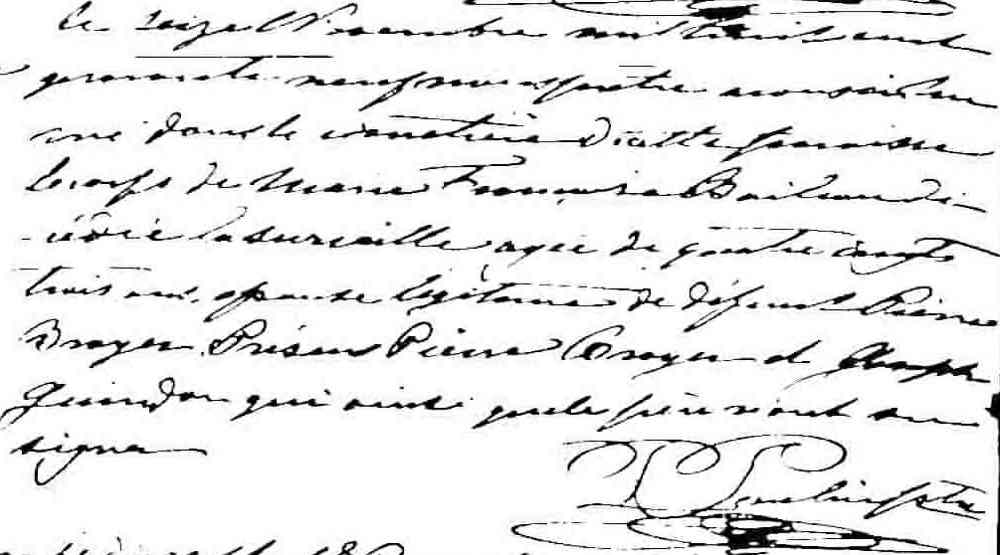 Le seize Novembre mil huit cent
quarante neuf nous prêtre avons inhu
mé dans le cimetière de cette paroisse
le corps de Marie Françoise Boileau dé-
-cédée la surveille agée de quatre vingt
trois ans, épouse légitime de défunt Pierre
Brayer Présens Pierre Brayer et Joseph
Guindon qui ainsi que le père n'ont su
signer
Ptre